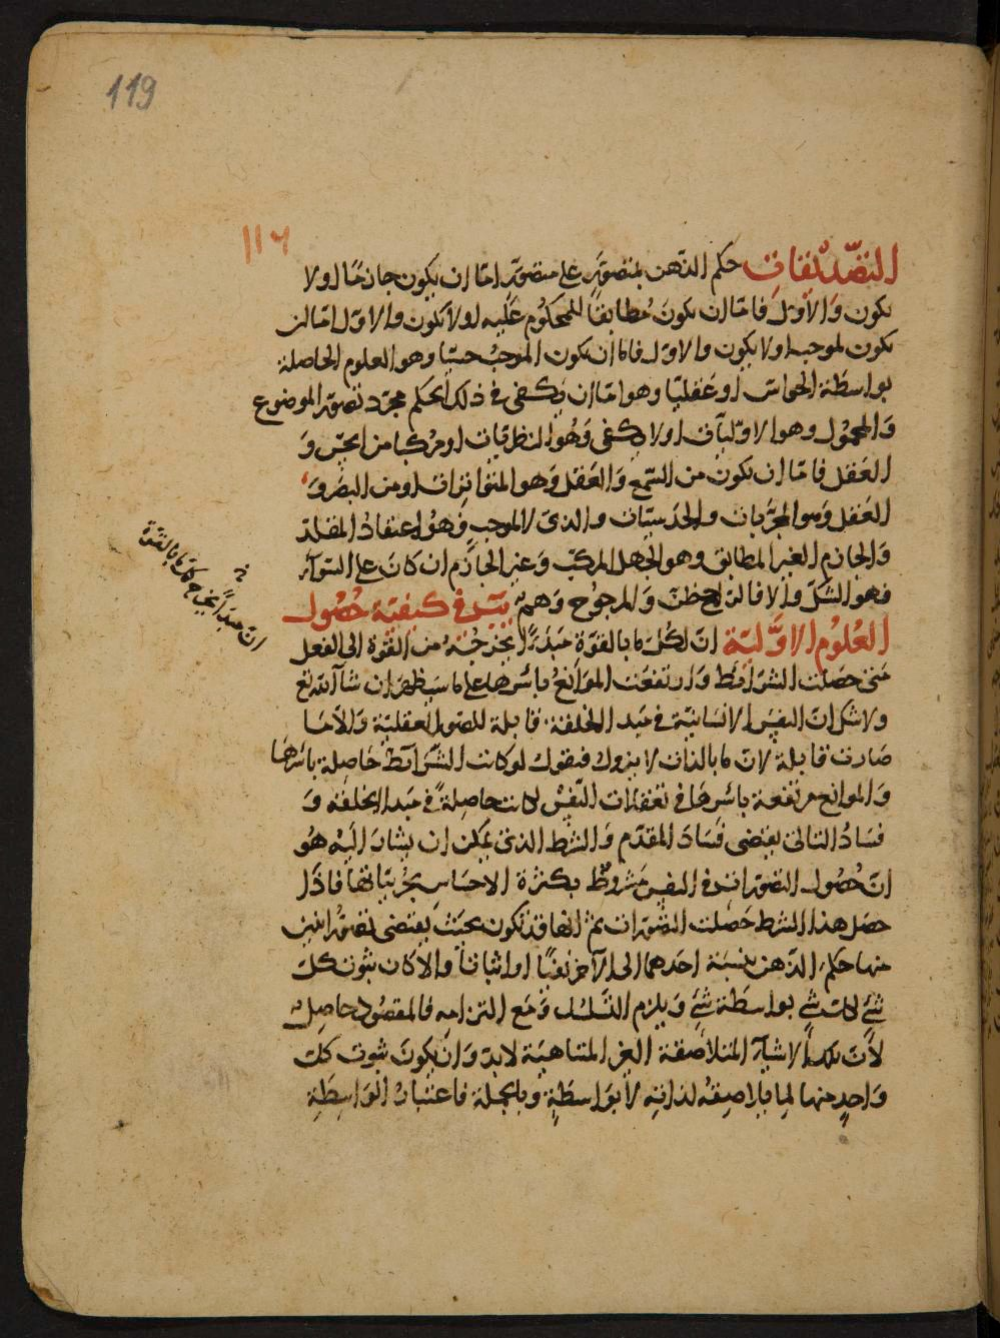 119
١١٦
التصديقات حكم الذهن بمتصور على متصور اما ان يكون جازما او لا
يكون والاول فاما ان يكون مطابقا للمحكوم عليه او لا يكون والاول اما ان
يكون لموجب او لا يكون والاول فاما ان يكون الموجب حسيا وهو العلوم الحاصلة
بواسطة الحواس او عقليا وهو اما ان يكفى فى ذلك الحكم مجرد تصور الموضوع
والمحمول وهو الاوليات او لا يكفى وهو النظريات او مركبا من الحس و
العقل فاما ان يكون من السمع والعقل وهو المتواترات او من البصر و
العقل وهو المجربات والحدسيات والذى لا لموجب وهو اعتقاد المقلد
والجازم الغير المطابق وهو الجهل المركب وغير الجازم ان كان على السواء
فهو الشك والا فالراجح ظن والمرجوح وهم فى كيفية حصول
العلوم الاولية ان لكل ما بالقوة مبدءا يخرجه من القوة الى الفعل
متى حصلت الشرائط وارتفعت الموانع باسرها على ما سيظهر ان شاء الله تع
ولا شك ان النفس الانسانية فى مبدا الخلقة قابلة للصور العقلية والا لما
صارت قابلة لان ما بالذات لا يزول فيقول لو كانت الشرائط حاصلة باسرها
والموانع مرتفعة باسرها فى تعقلات النفس لكانت حاصلة فى مبدا الخلقة و
فساد التالى يقتضى فساد المقدم والشرط الذى يمكن ان يشار اليه هو
ان حصول التصورات فى النفس مشروط بكثرة الاحساس بجزئياتها فاذا
حصل هذا الشرط حصلت التصورات ثم انها قد تكون بحيث يقتضى تصور اثنين
منها حكم الذهن بنسبة احدهما الى الآخر نفيا او اثباتا والا كان ثبوت كل
شئ لكل شئ بواسطة شئ ويلزم التسلسل ومع التزامه فالمقصود حاصل
لأن تلك الاشياء المتلاصقة الغير المتناهية لا بد وان يكون ثبوت كل
واحد منها لما يلاصقه لذاته لا بواسطة وبالجملة فاعتبار الواسطة
ان مبدأ يخرج كل ما بالقوة